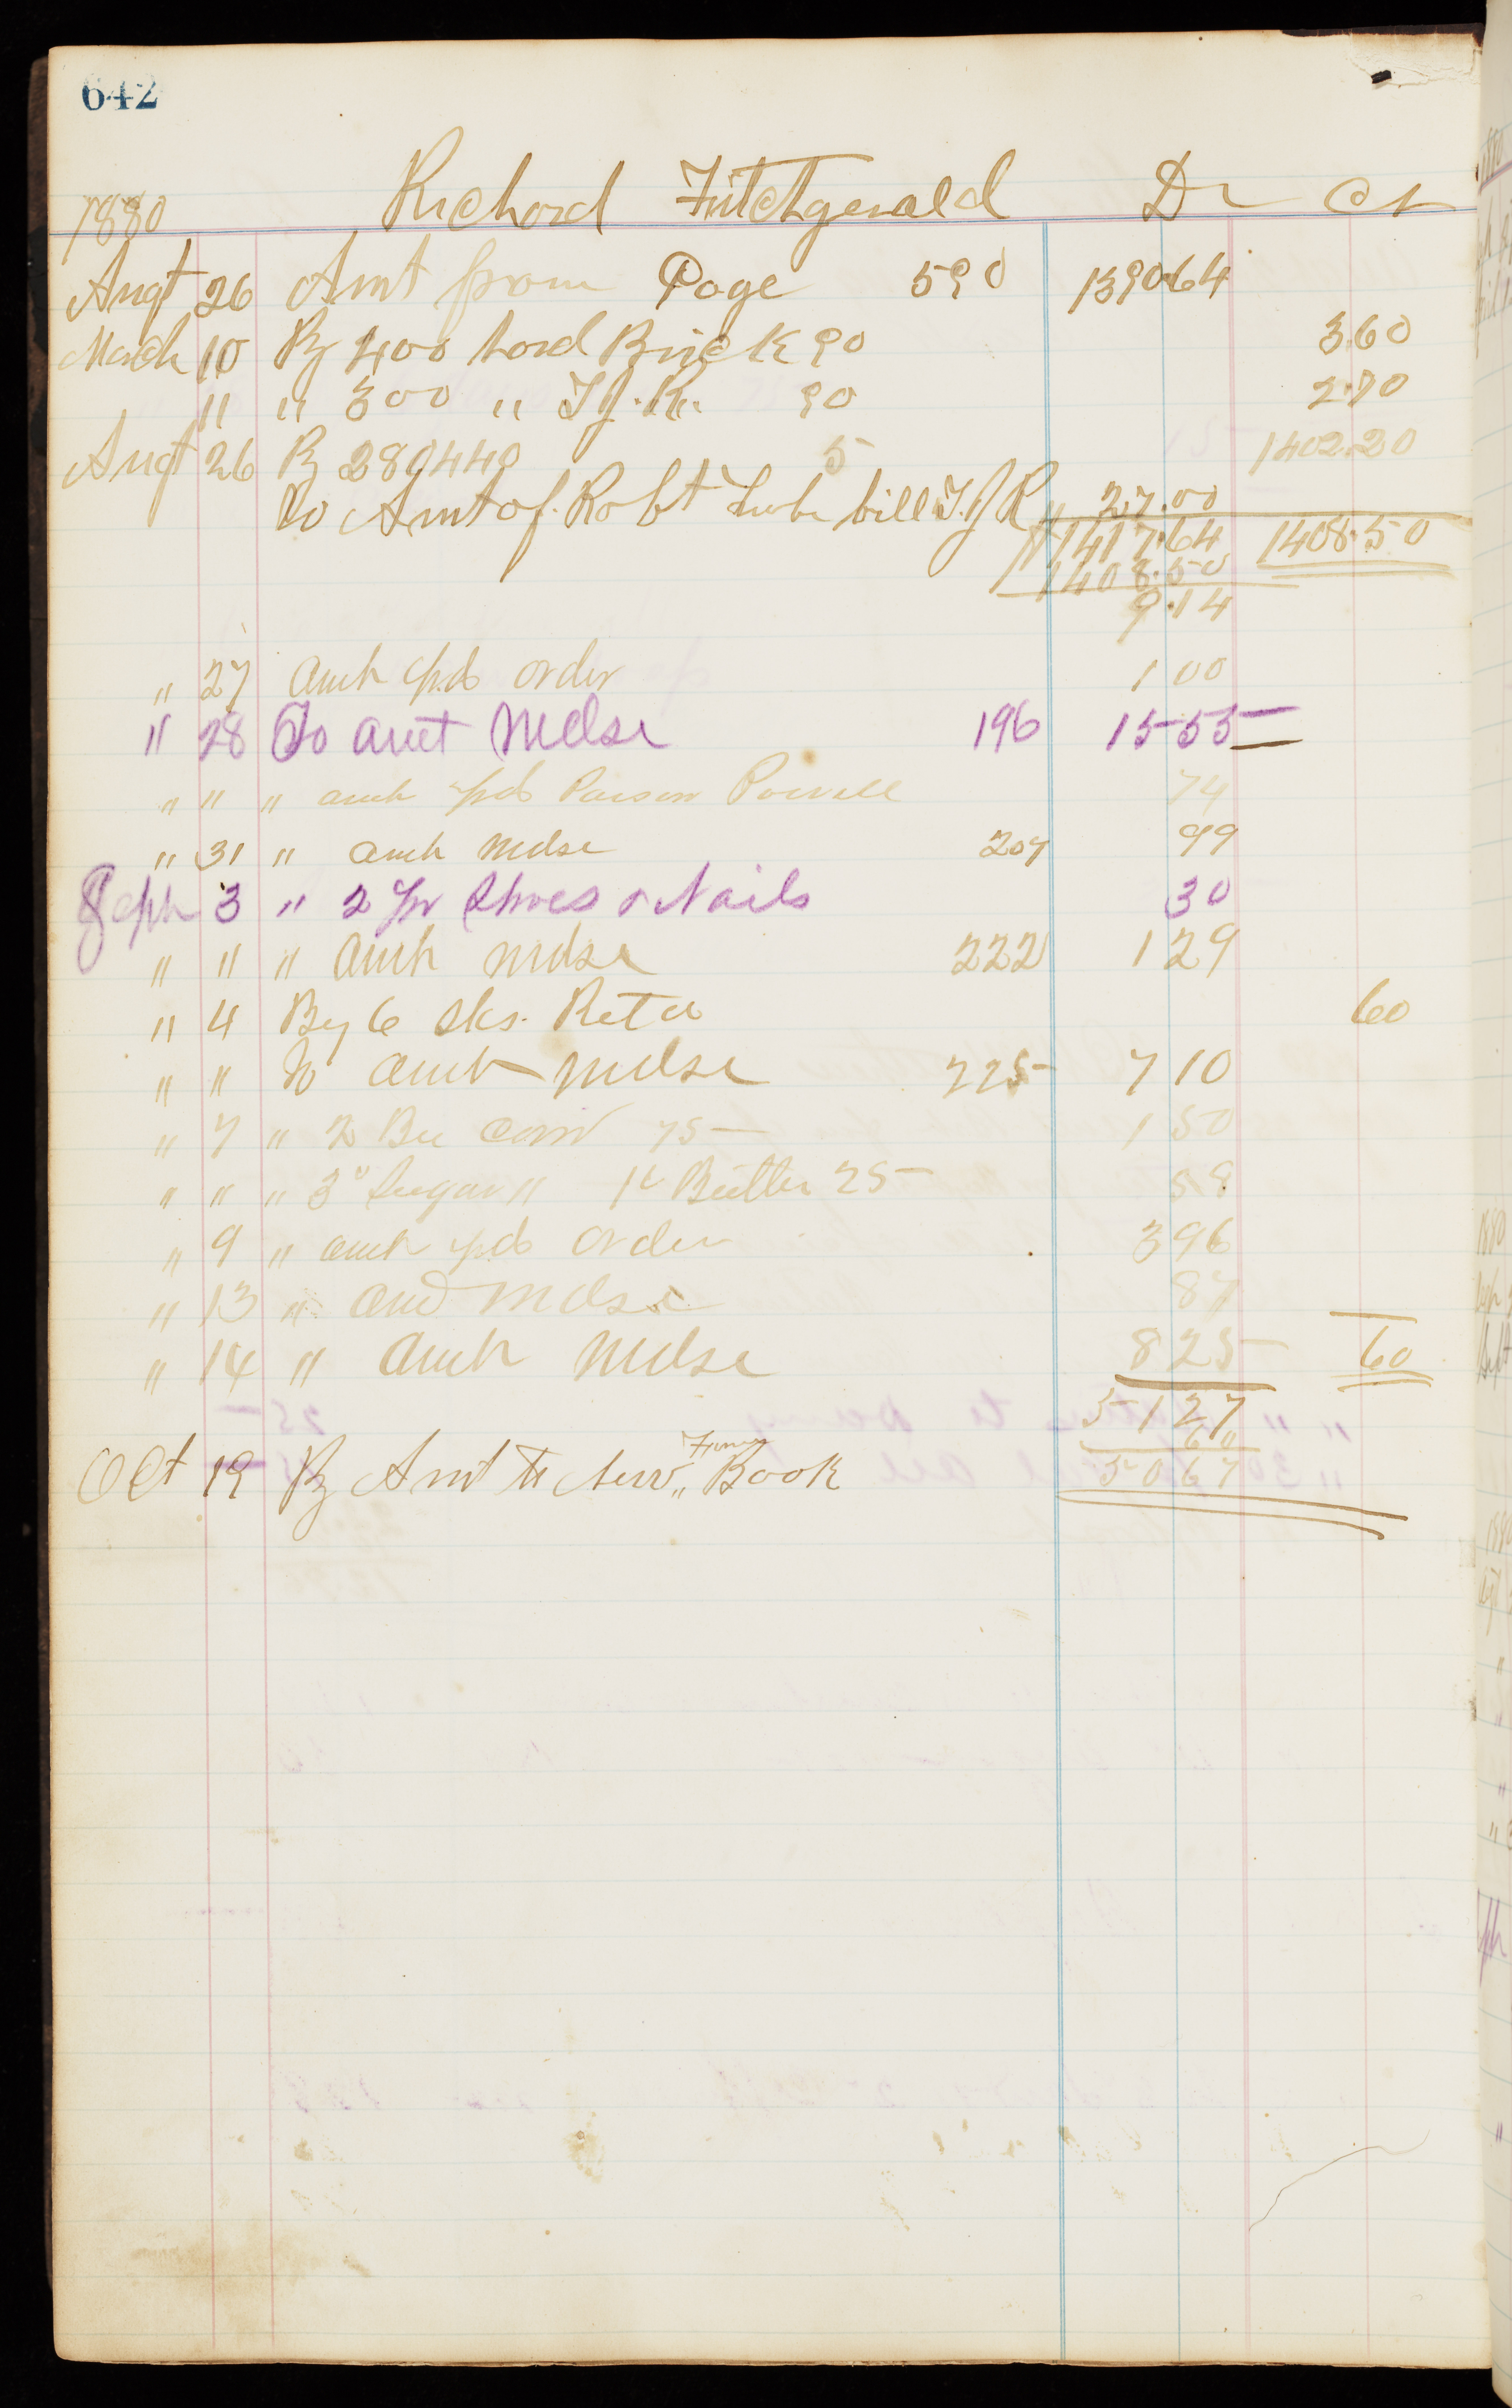 642
1880 Richard Fitchgerald Dr Cr
Augt 26 Amt from Page 590 1390 64
March 10 By 400 hard Brick 90 3.60
" " 300 " T.J.R. 90 2.70
Augt 26 By 280440 5 1402.20
To Amt of Robt bill T.J.R. 27.00
1417.64 1408.50
1408.50
9.14
" 27 Amt pd order 1 00
" 28 To amt Mdse 196 15 55
" " " amt pd Parson Powell 74
" 31 " amt Mdse 207 99
Sept 3 " 2 pr Shoes & Nails 30
" " " Amt mdse 222 1 29
" 4 By 6 sks. Retd 60
" " To amt mdse 225 7 10
" 7 " 2 Bu Corn 75 1 50
" " " 3# Sugar " 1# Butter 25 58
" 9 " amt pd order 3 96
" 13 " amt mdse 87
" 14 " amt Mdse 8 25 60
51 27
60
Oct 19 By Amt to New " Book 50 67